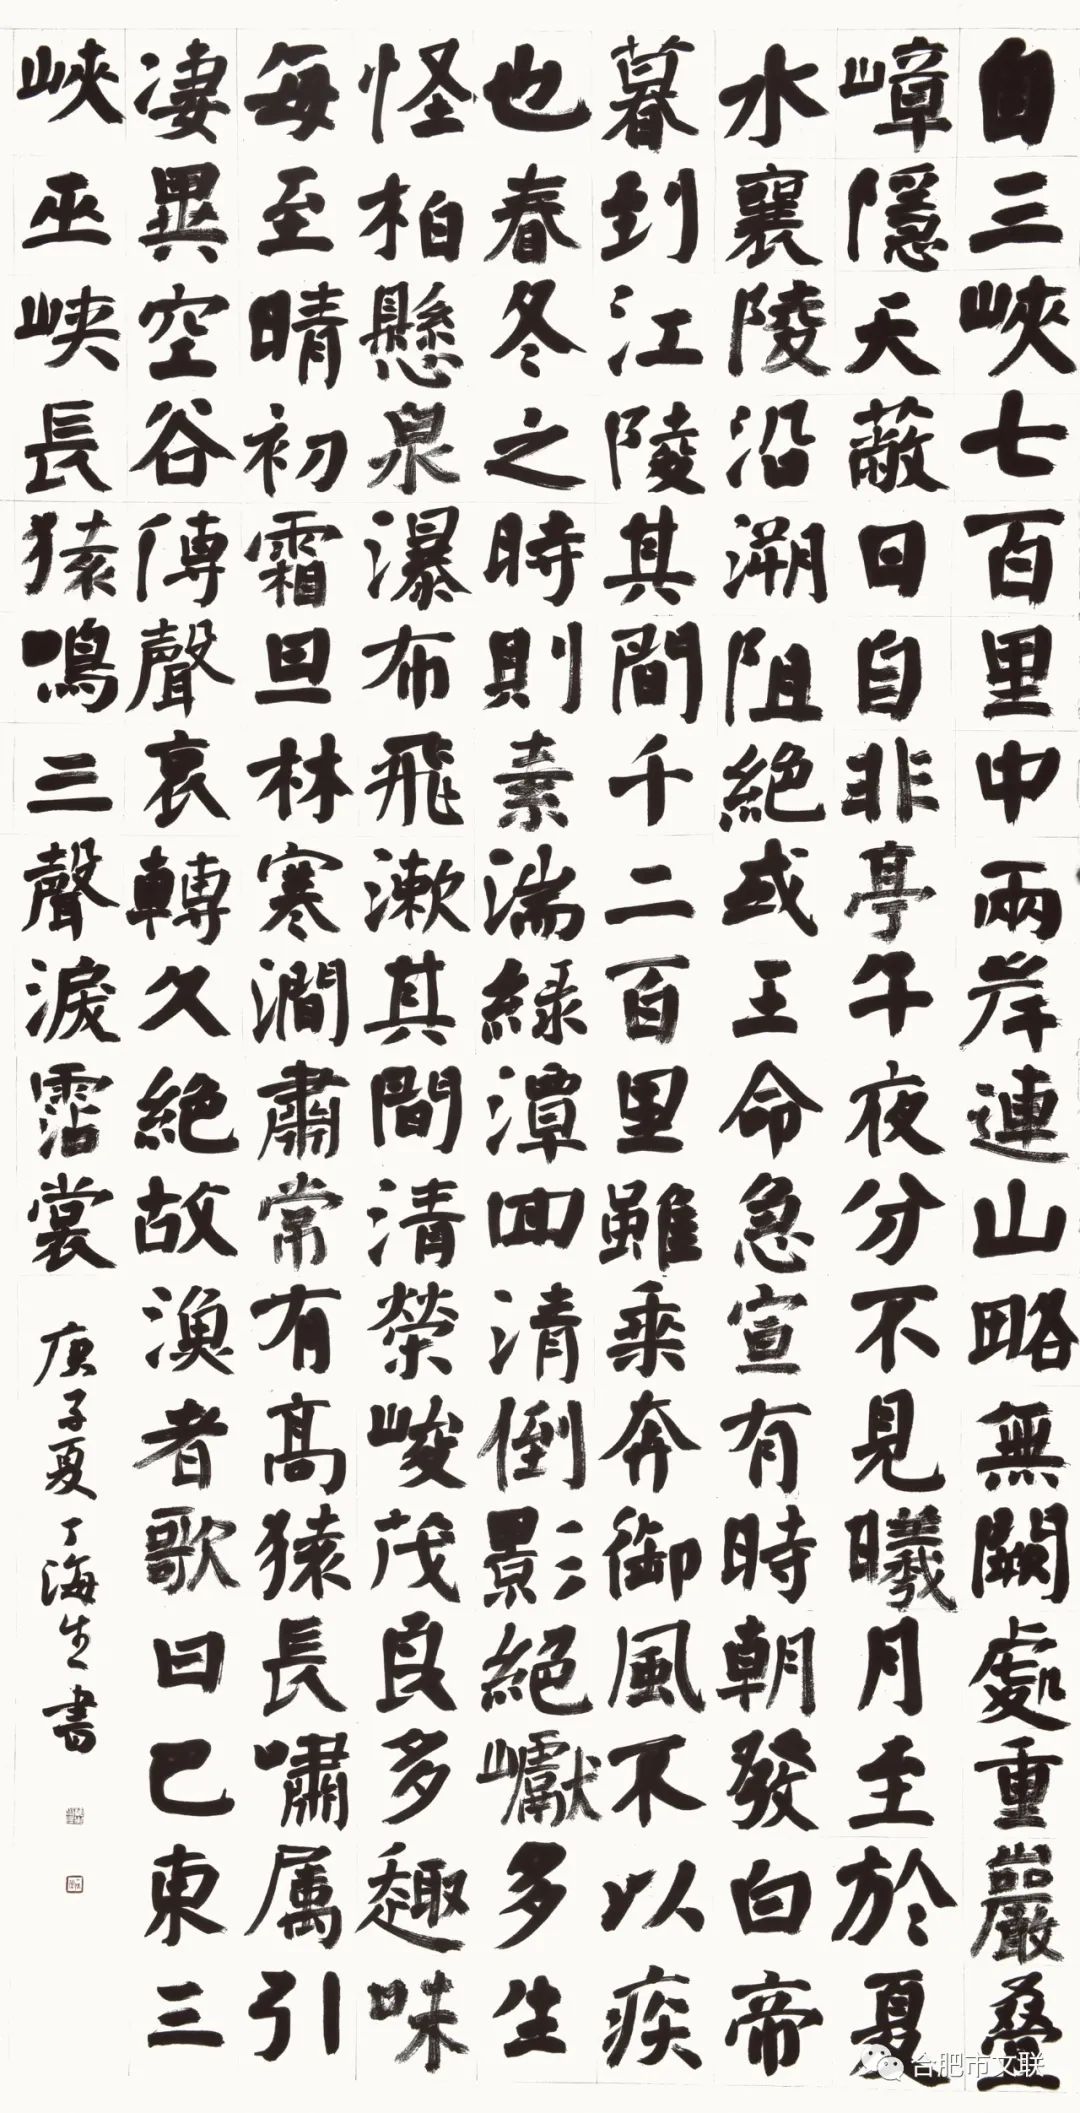 自三峽七百里中兩岸連山略無闕處重巖叠
嶂隱天蔽日自非亭午夜分不見曦月至於夏
水襄陵沿溯阻絕或王命急宣有時朝發白帝
暮到江陵其間千二百里雖乘奔御風不以疾
也春冬之時則素湍綠潭回清倒影絕巘多生
怪柏懸泉瀑布飛漱其間清榮峻茂良多趣味
每至晴初霜旦林寒澗肅常有高猿長嘯属引
凄異空谷傳聲哀轉久絕故漁者歌曰巴東三
峽巫峽長猿鳴三聲淚霑裳
庚子夏丁海生書
合肥市文联